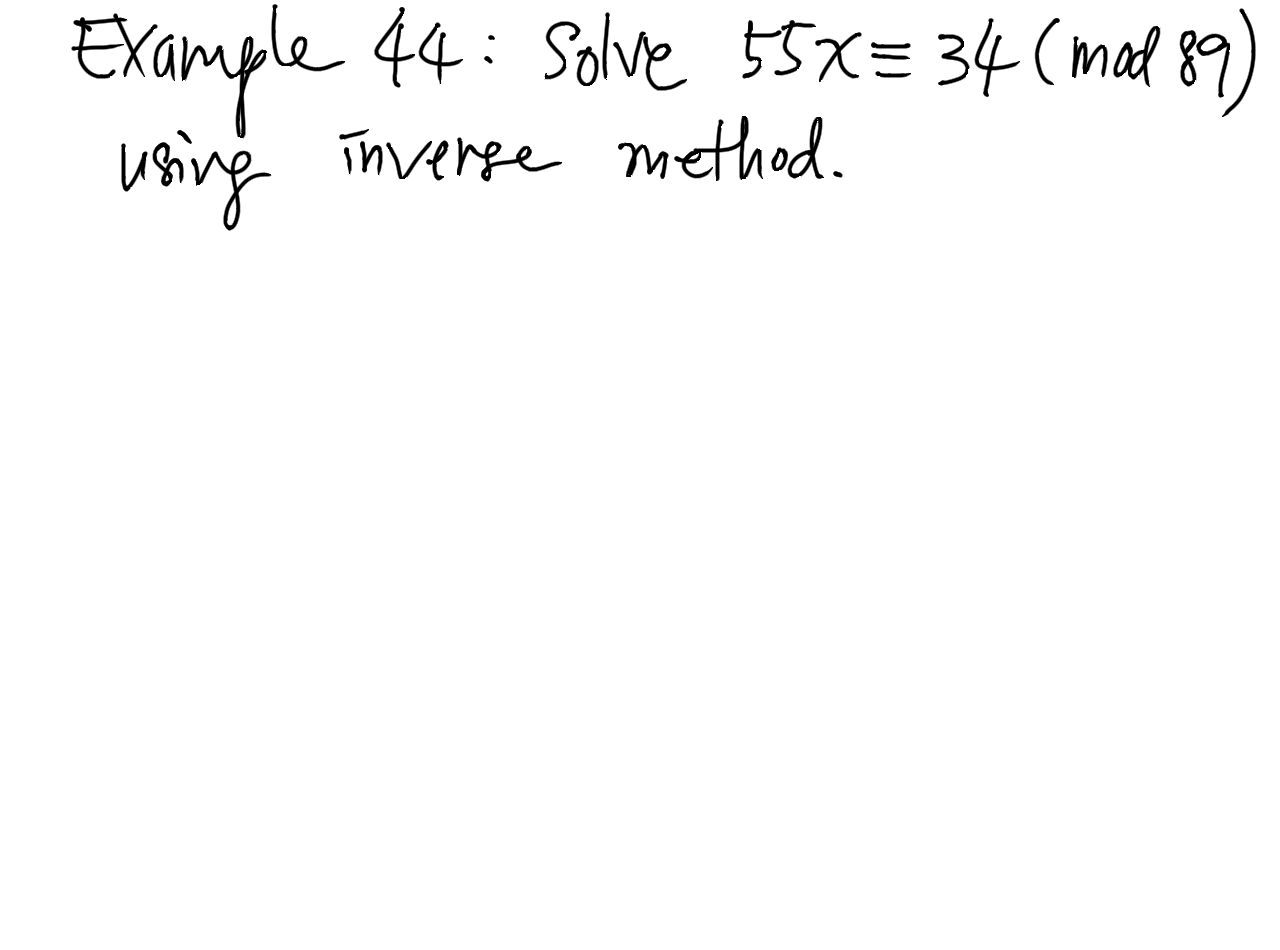 Example 44: Solve 55x ≡ 34 (mod 89)
using inverse method.